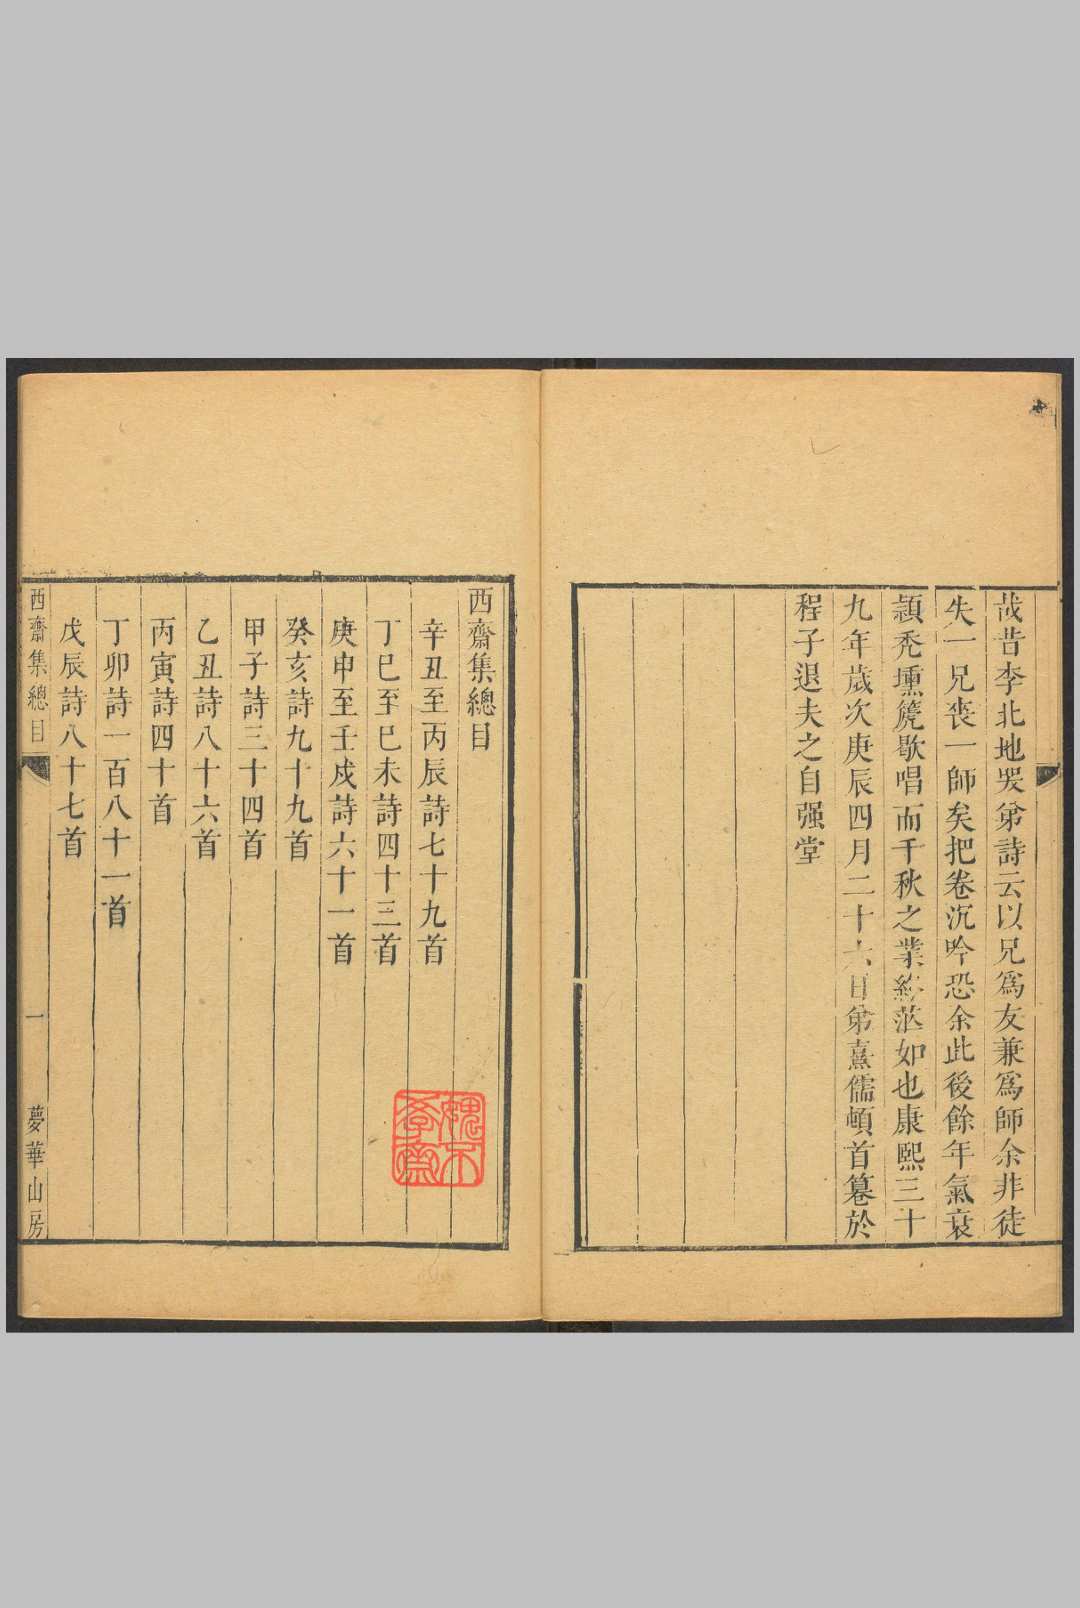 哉昔李北地哭弟詩云以兄爲友兼爲師余非徒
失一兄喪一師矣把卷沉吟恐余此後餘年氣衰
頴秃壎篪歇唱而千秋之業終茫如也康熙三十
九年歲次庚辰四月二十六日弟熹儒頓首篹於
程子退夫之自强堂
西齋集總目
辛丑至丙辰詩七十九首
丁巳至巳未詩四十三首
庚申至壬戍詩六十一首
癸亥詩九十九首
甲子詩三十四首
乙丑詩八十六首
丙寅詩四十首
丁卯詩一百八十一首
戊辰詩八十七首
西齋集總目 一 夢華山房